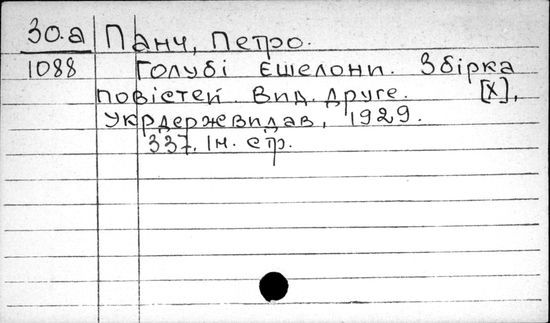 30.а Панч, Петро.
1088 Голубі ешелони. Збірка
повістей. Вид. друге. [Х],
Укрдержвидав, 1929.
337, 1н. стр.